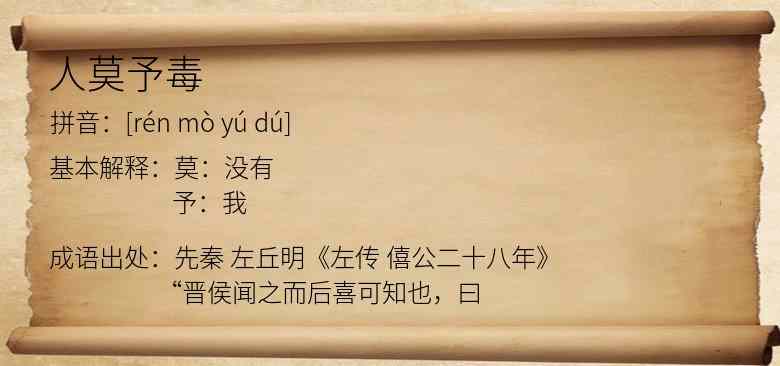 人莫予毒
拼音：[rén mò yú dú]
基本解释：莫：没有
予：我
成语出处：先秦 左丘明《左传 僖公二十八年》
“晋侯闻之而后喜可知也，曰